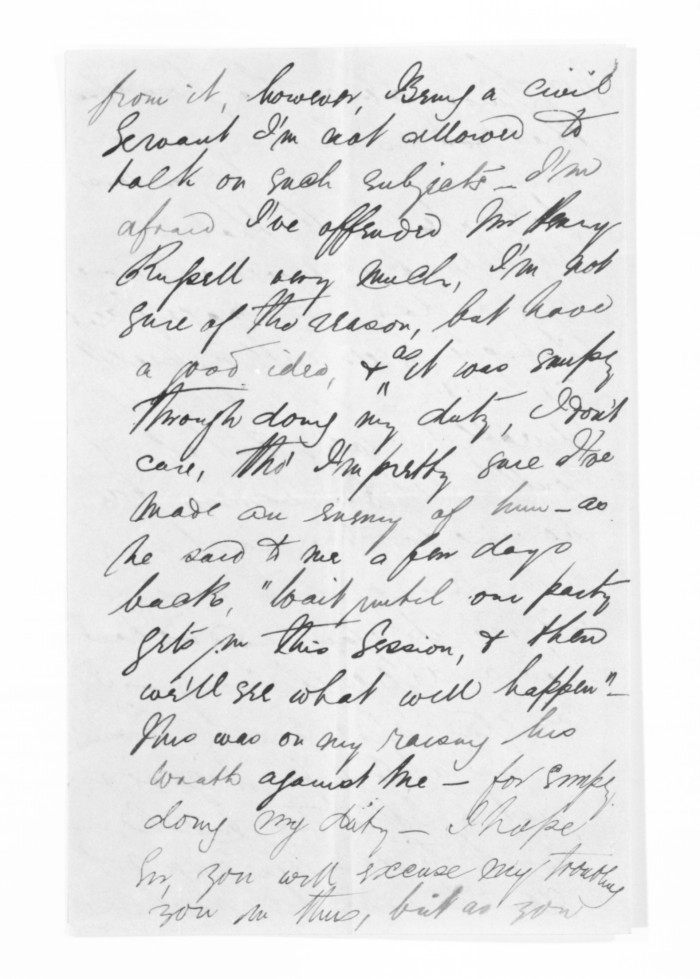 from it, however, Being a civil
Servant I'm not allowed to
talk on such subjects — I'm
afraid I've offended Mr Henry
Russell very much, I'm not
sure of the reason, but have
a good idea, & as it was simply
through doing my duty, I don't
care, tho' I'm pretty sure I've
made an enemy of him — as
he said to me a few days
back, "Wait until our party
gets in this Session, & then
we'll see what will happen" —
This was on my raising his
wrath against me — for simply
doing my duty — I hope
Sir, you will excuse my troubling
you in this, but as you